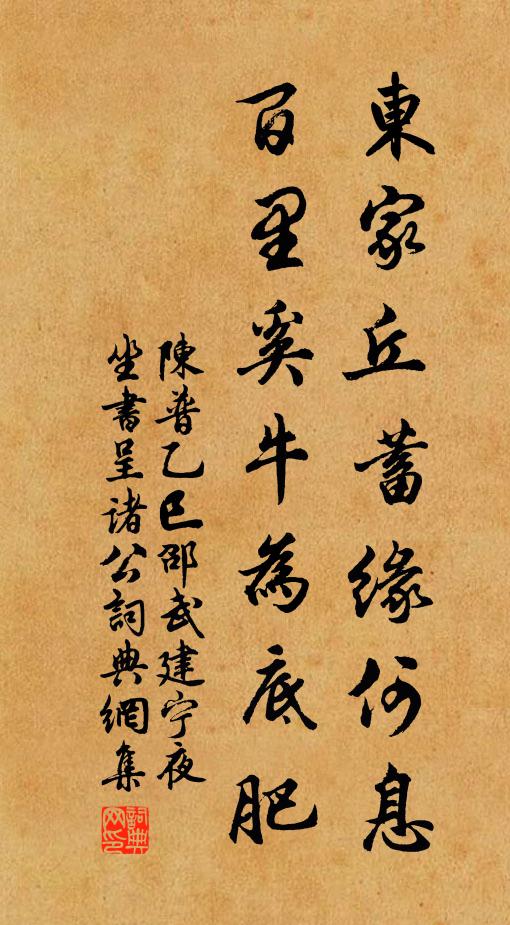 東家丘蓄緣何息
百里奚牛為底肥
陳普乙巳邵武建宁夜
坐書呈诸公詞典網集
詞典网印